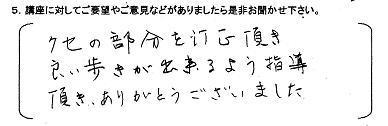 5. 講座に対してご要望やご意見などがありましたら是非お聞かせ下さい。
クセの部分を訂正頂き
良い歩きが出来るよう指導
頂き、ありがとうございました